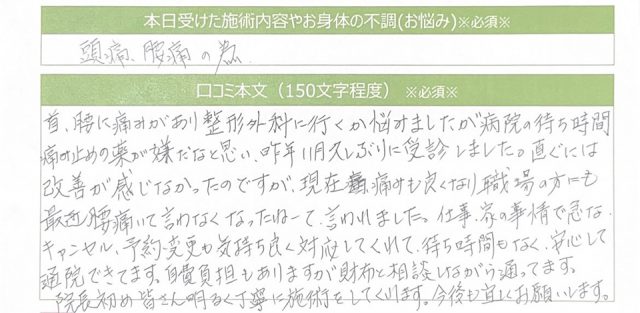 本日受けた施術内容やお身体の不調(お悩み)※必須※
頭痛、腰痛の為
口コミ本文（150文字程度）※必須※
首、腰に痛みがあり整形外科に行くか悩みましたが病院の待ち時間
痛み止めの薬が嫌だなと思い、昨年11月久しぶりに受診しました。直ぐには
改善が感じなかったのですが、現在痛みも良くなり職場の方にも
最近腰痛いて言わなくなったねーて、言われました。仕事、家の事情で急な
キャンセル、予約変更も気持ち良く対応してくれて、待ち時間もなく、安心して
通院できてます。自費負担もありますが財布と相談しながら通ってます。
院長初め皆さん明るく丁寧に施術をしてくれます。今後も宜しくお願いします。